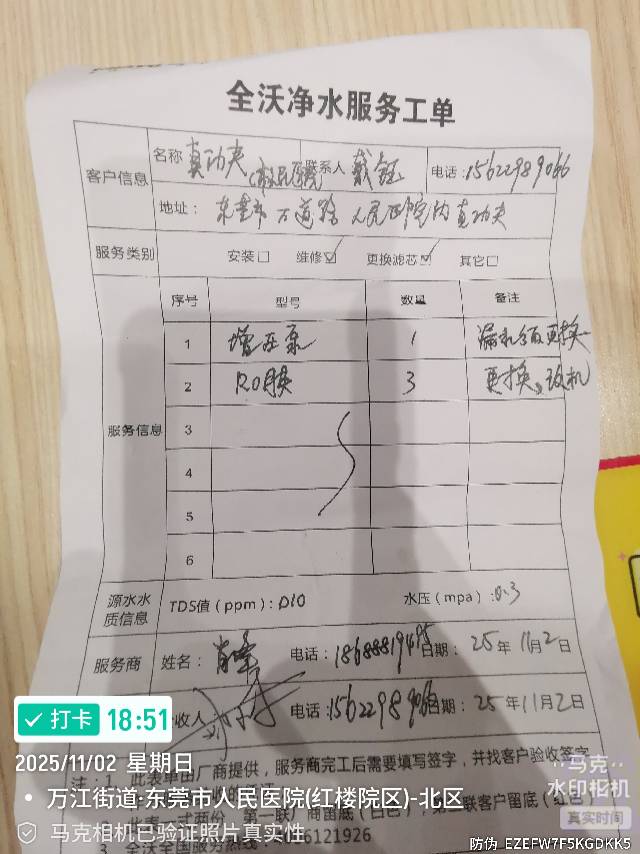 全沃净水服务工单
客户信息 名称 真功夫(市人民医院 联系人 戴钰 电话:15622989066
地址: 东莞市万道路人民医院内真功夫
服务类别 安装□ 维修☑ 更换滤芯☑ 其它□
服务信息 序号 型号 数量 备注
1 增压泵 1 漏水须更换
2 RO膜 3 更换
3
4
5
6
源水水质信息 TDS值(ppm):010 水压(mpa):0.3
服务商 姓名: 肖峰 电话: 日期: 25年11月2日
收人 电话:15622989066 日期: 25年11月2日
注:1、此表单由厂商提供,服务商完工后需要填写签字,并找客户验收签字
此表一式两份 第一联厂商留底(白色),第二联客户留底(红色)
3、全沃全国服务热线: 6121926
打卡 18:51
2025/11/02 星期日
万江街道·东莞市人民医院(红楼院区)-北区
马克相机已验证照片真实性
马克
水印相机
真实时间
防伪 EZEFW7F5KGDKK5